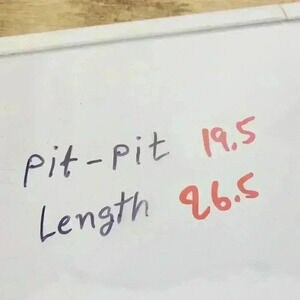 Pit-Pit 19.5
Length 26.5